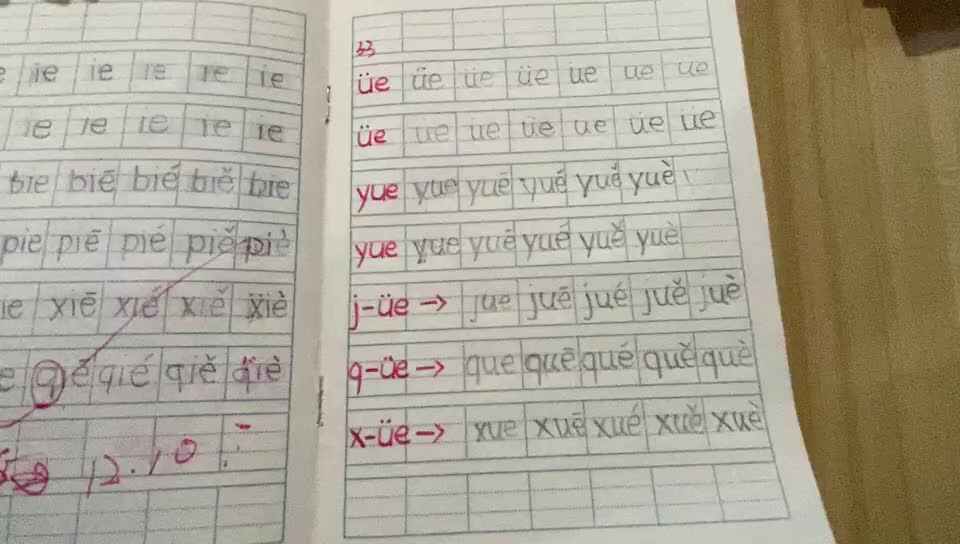 ie ie ie ie ie
ie ie ie ie ie
bie biē bié biě bie
pie piē pié piě piè
ie xiē xié xiě xiè
q ē qié qiě qiè
12.10
33
üe üe üe üe ue ue ue
üe ue ue üe ue üe üe
yue yue yuē yué yuě yuè
yue yue yuē yué yuě yuè
j-üe → jue juē jué juě juè
q-üe → que quē qué quě què
x-üe → xue xuē xué xuě xuè